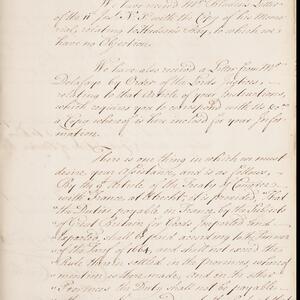 We have received Mr. Bladen's Letter
of the 11th Inst. N.S. with the Copy of his Memo-
rial, relating to Hudson's Bay, to which we
have no Objection.
We have also received a Letter from Mr.
Delafaye by Order of the Lords Justices
relating to that Article of your Instructions,
which requires you to correspond with us &c.
a Copy whereof is here inclosed for your Infor-
mation.
There is one thing in which we must
desire your Assistance, and is as follows,
By the 9th Article of the Treaty of Commerce
with France at Utrecht, it is provided, that
the Duties payable in France, by the Subjects
of Great Britain for Goods, Imported and
Exported, shall be paid according to the Tenour
of the Tariff of 1664, and shall not exceed the
Rule therein settled, in the Provinces, whereof
mention is there made, and in the other
Provinces the Duty shall not be payable